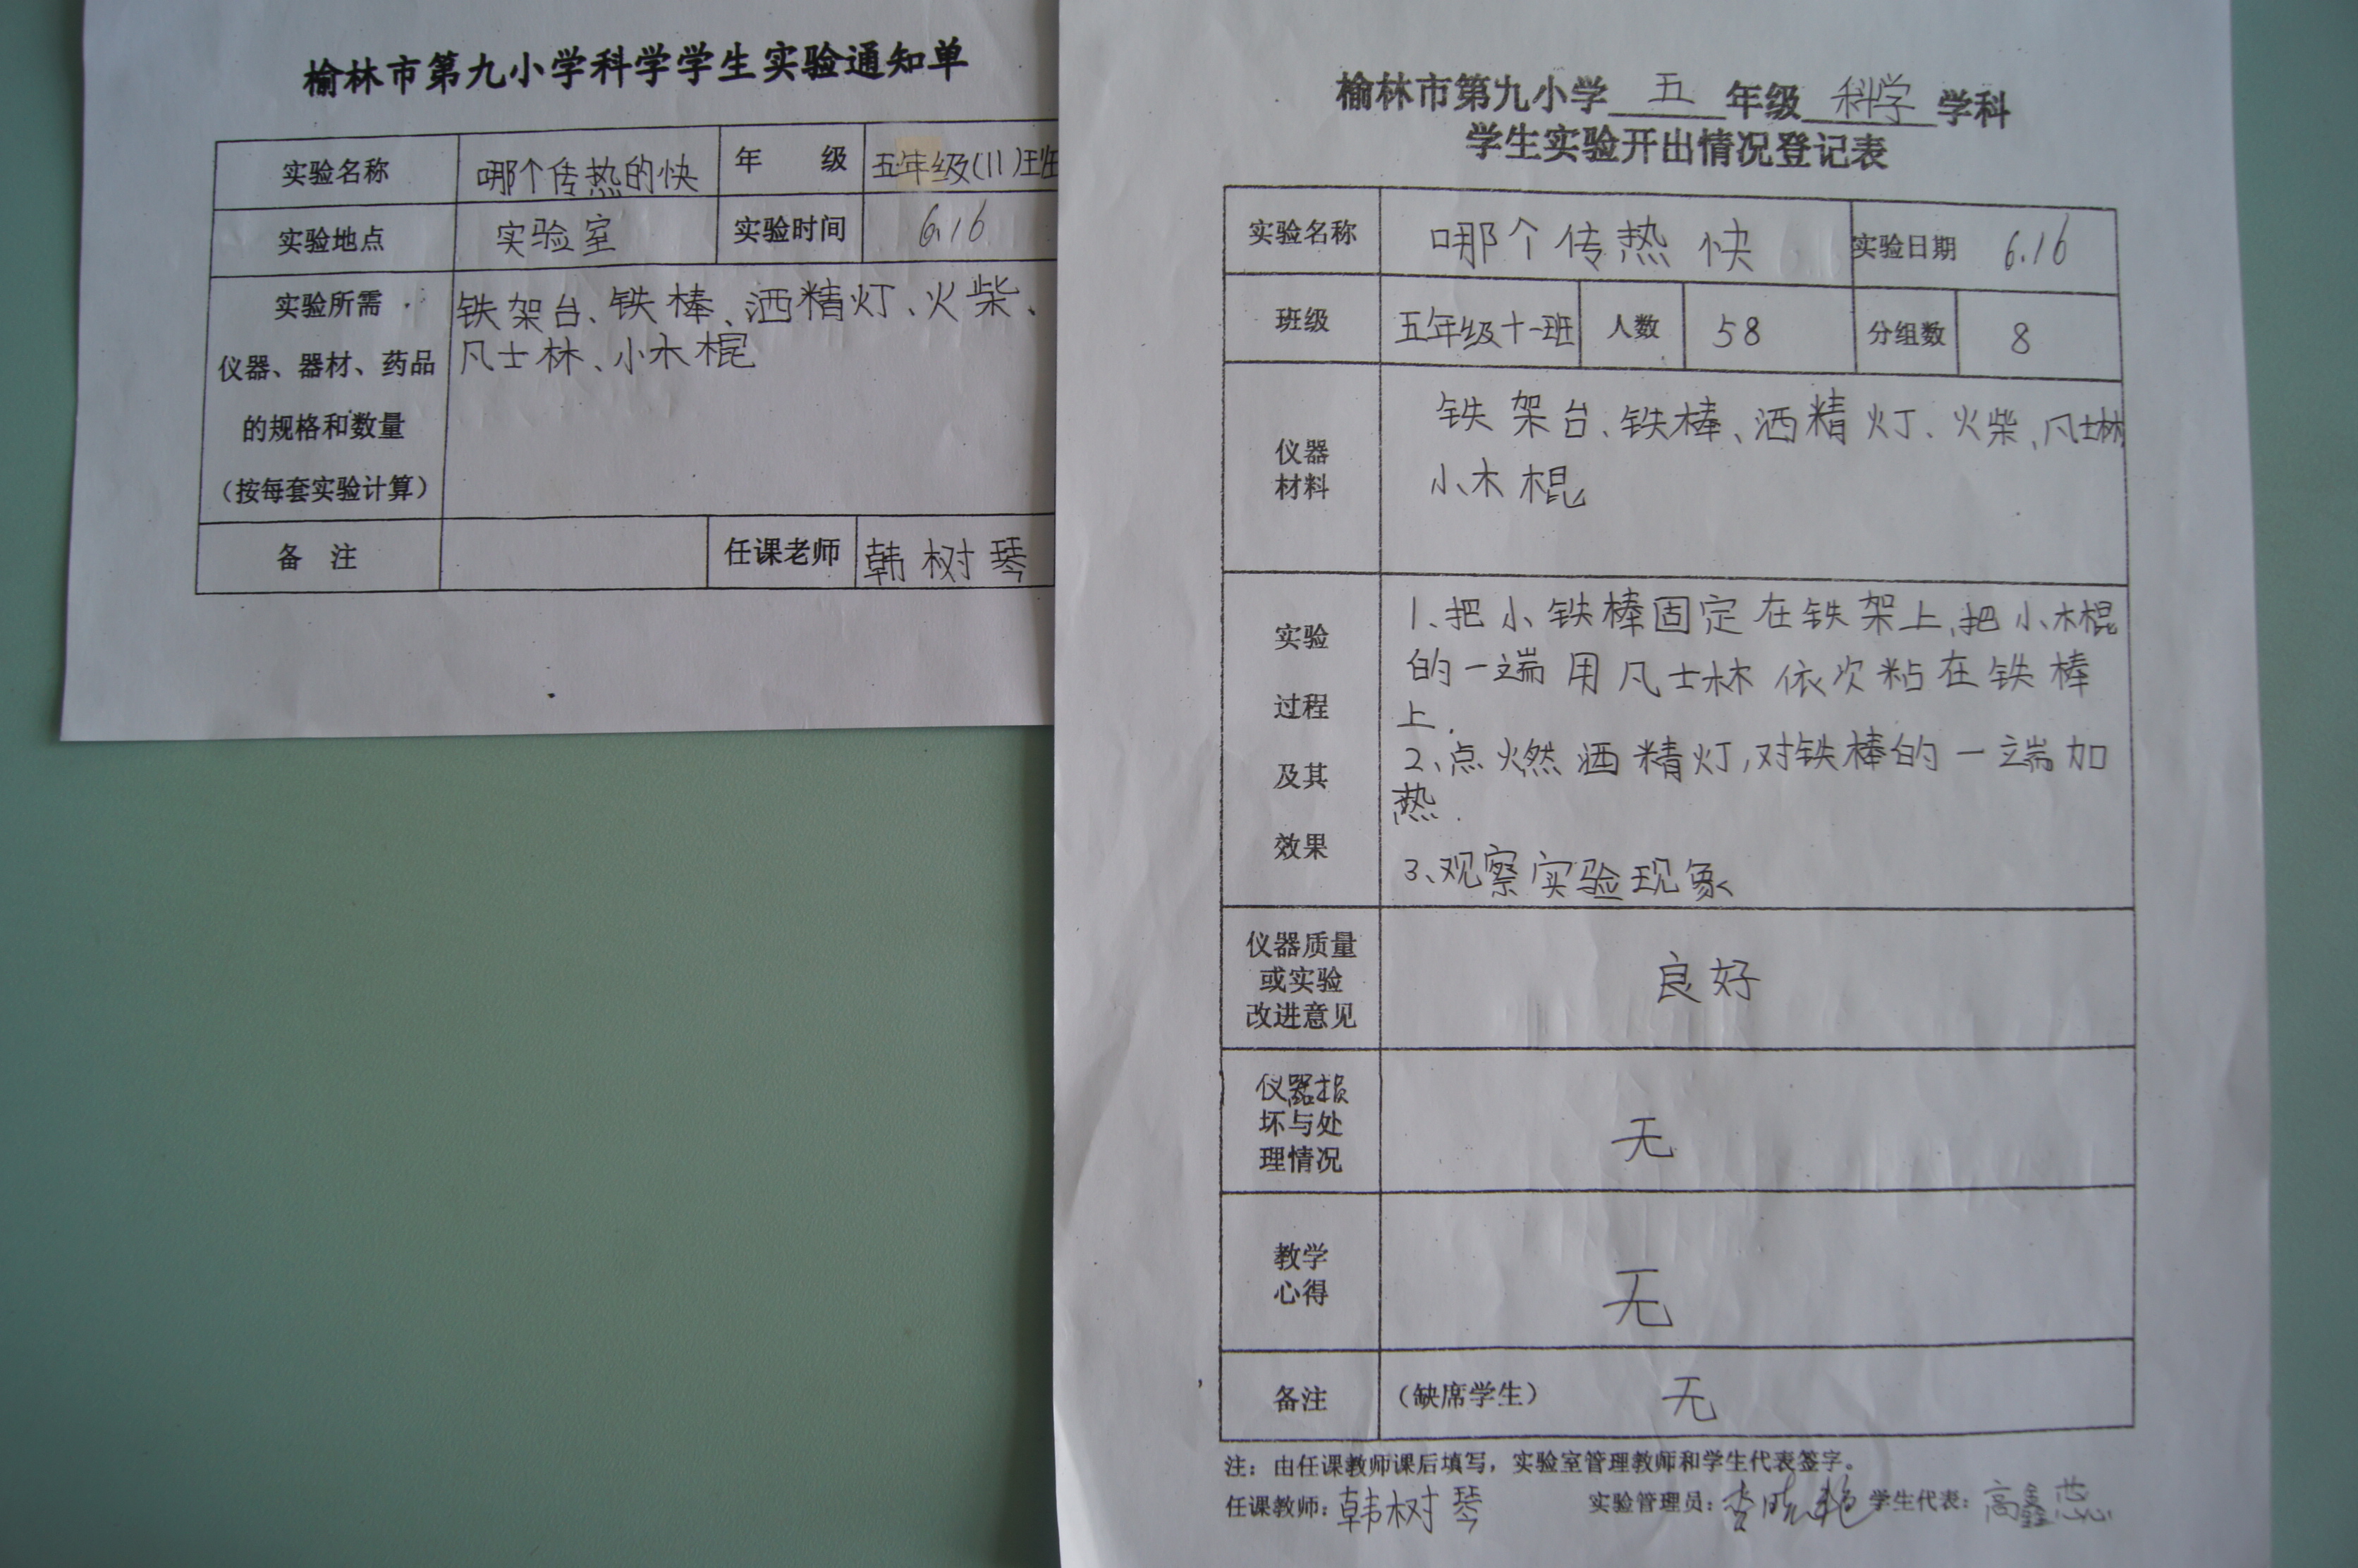 榆林市第九小学科学学生实验通知单
实验名称 哪个传热的快 年 级 五年级(11)班
实验地点 实验室 实验时间 6.16
实验所需
仪器、器材、药品
的规格和数量
（按每套实验计算）
铁架台、铁棒、洒精灯、火柴、
凡士林、小木棍
备 注 任课老师 韩树琴
榆林市第九小学 五 年级 科学 学科
学生实验开出情况登记表
实验名称 哪个传热快 实验日期 6.16
班级 五年级十一班 人数 58 分组数 8
仪器
材料
铁架台、铁棒、洒精灯、火柴、凡士林
小木棍
实验
过程
及其
效果
1、把小铁棒固定在铁架上,把小木棍
的一端用凡士林依次粘在铁棒
上.
2、点燃洒精灯,对铁棒的一端加
热.
3、观察实验现象
仪器质量
或实验
改进意见
良好
仪器损
坏与处
理情况
无
教学
心得
无
备注 （缺席学生） 无
注：由任课教师课后填写，实验室管理教师和学生代表签字。
任课教师：韩树琴 实验管理员： 学生代表：高鑫蕊